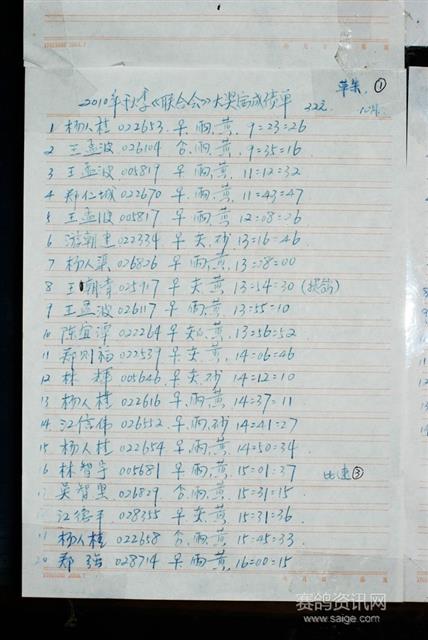 2010年秋季《联合会》大奖赛成绩单
①
1 杨人桂 022653 早 雨 黄 9=23=26
2 王孟波 026104 合 雨 黄 9=35=16
3 王孟波 005819 早 雨 黄 11=12=32
4 郑仁城 022670 早 雨 黄 11=43=47
5 王孟波 005817 早 雨 黄 12=08=26
6 游朝建 022334 早 灰 砂 13=16=46
7 杨人渠 026826 早 雨 黄 13=28=00
8 王朝清 025917 早 灰 黄 13=54=30
9 王孟波 026117 早 雨 黄 13=55=10
10 陈宜谭 022264 早 灰 黄 13=56=52
11 郑则福 022539 早 灰 黄 14=06=46
12 林 辉 005646 早 灰 砂 14=12=10
13 杨人桂 022616 早 雨 黄 14=37=11
14 江信伟 026552 早 雨 砂 14=41=27
15 杨人桂 022654 早 雨 黄 14=50=34
16 林智宇 005681 早 雨 黄 15=01=37 比速③
吴智星 026829 合 雨 黄 15=31=15
江德平 028355 早 灰 黄 15=31=36
杨人桂 022658 合 雨 黄 15=45=33
20 郑 强 028714 早 雨 黄 16=00=15
赛鸽资讯网
www.saige.com